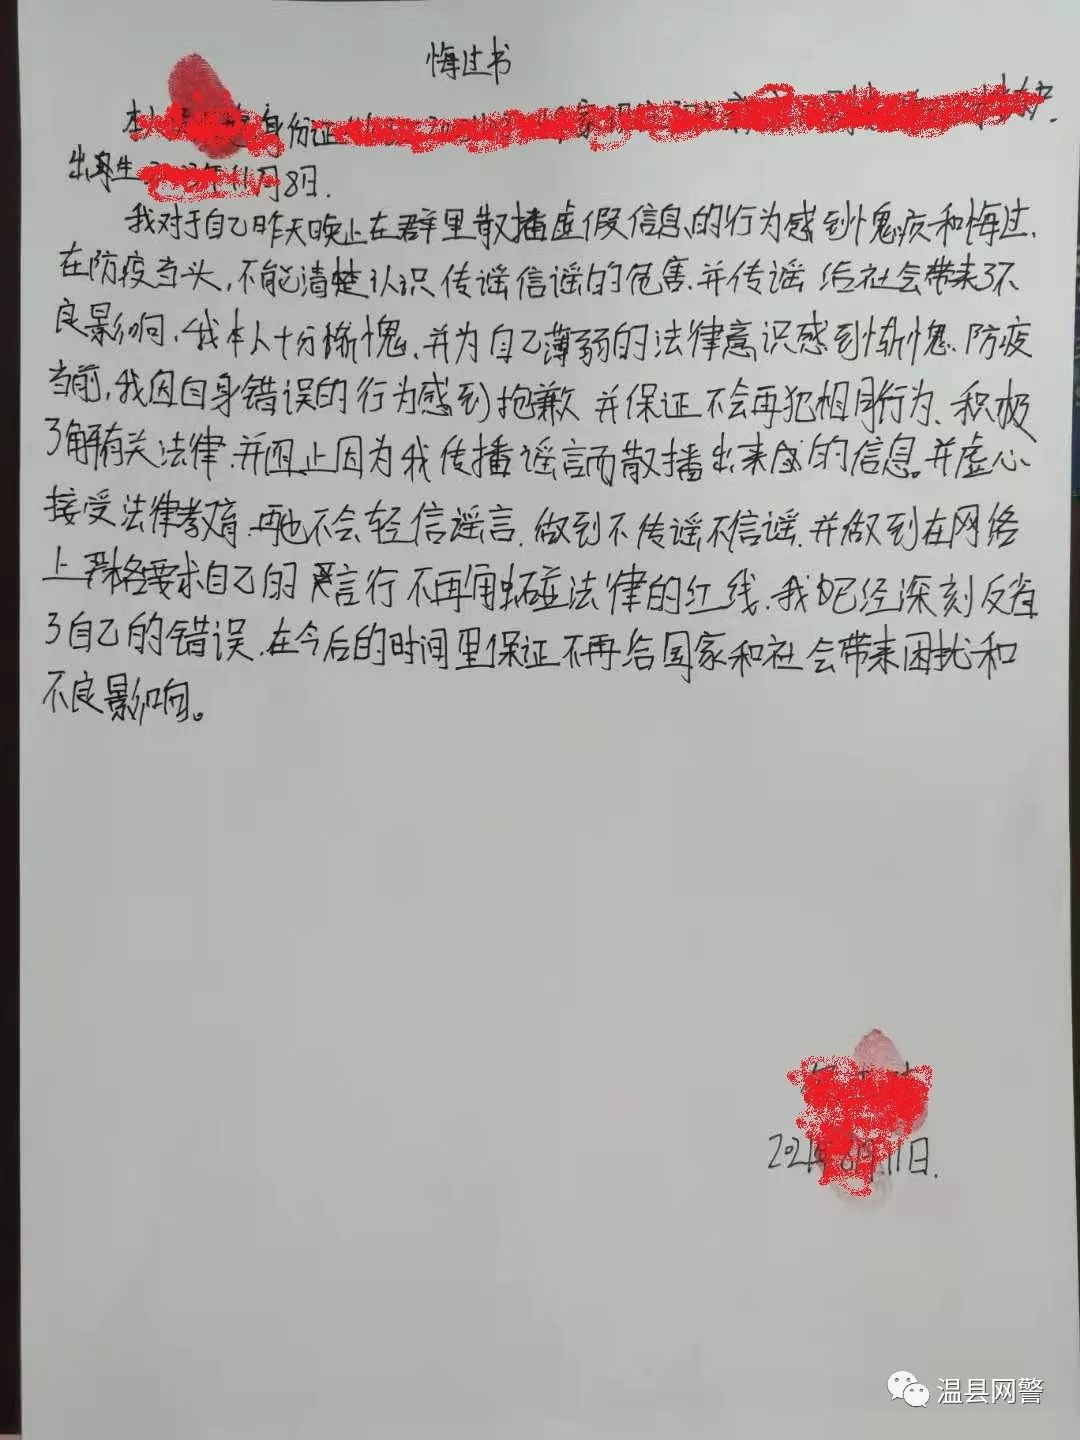 悔过书
本 身份证
出生 年11月8日.
我对于自己昨天晚上在群里散播虚假信息的行为感到愧疚和悔过.
在防疫当头,不能清楚认识传谣信谣的危害.并传谣 给社会带来了不
良影响,我本人十分惭愧.并为自己薄弱的法律意识感到惭愧.防疫
当前,我因自身错误的行为感到抱歉 并保证不会再犯相同行为、积极
了解有关法律.并阻止因为我传播谣言而散播出来的信息。并虚心
接受法律教育.再也不会轻信谣言.做到不传谣不信谣.并做到在网络
上严格要求自己的言行 不再触碰法律的红线.我已经深刻反省
了自己的错误.在今后的时间里保证不再给国家和社会带来困扰和
不良影响。
2021年8月11日.
温县网警